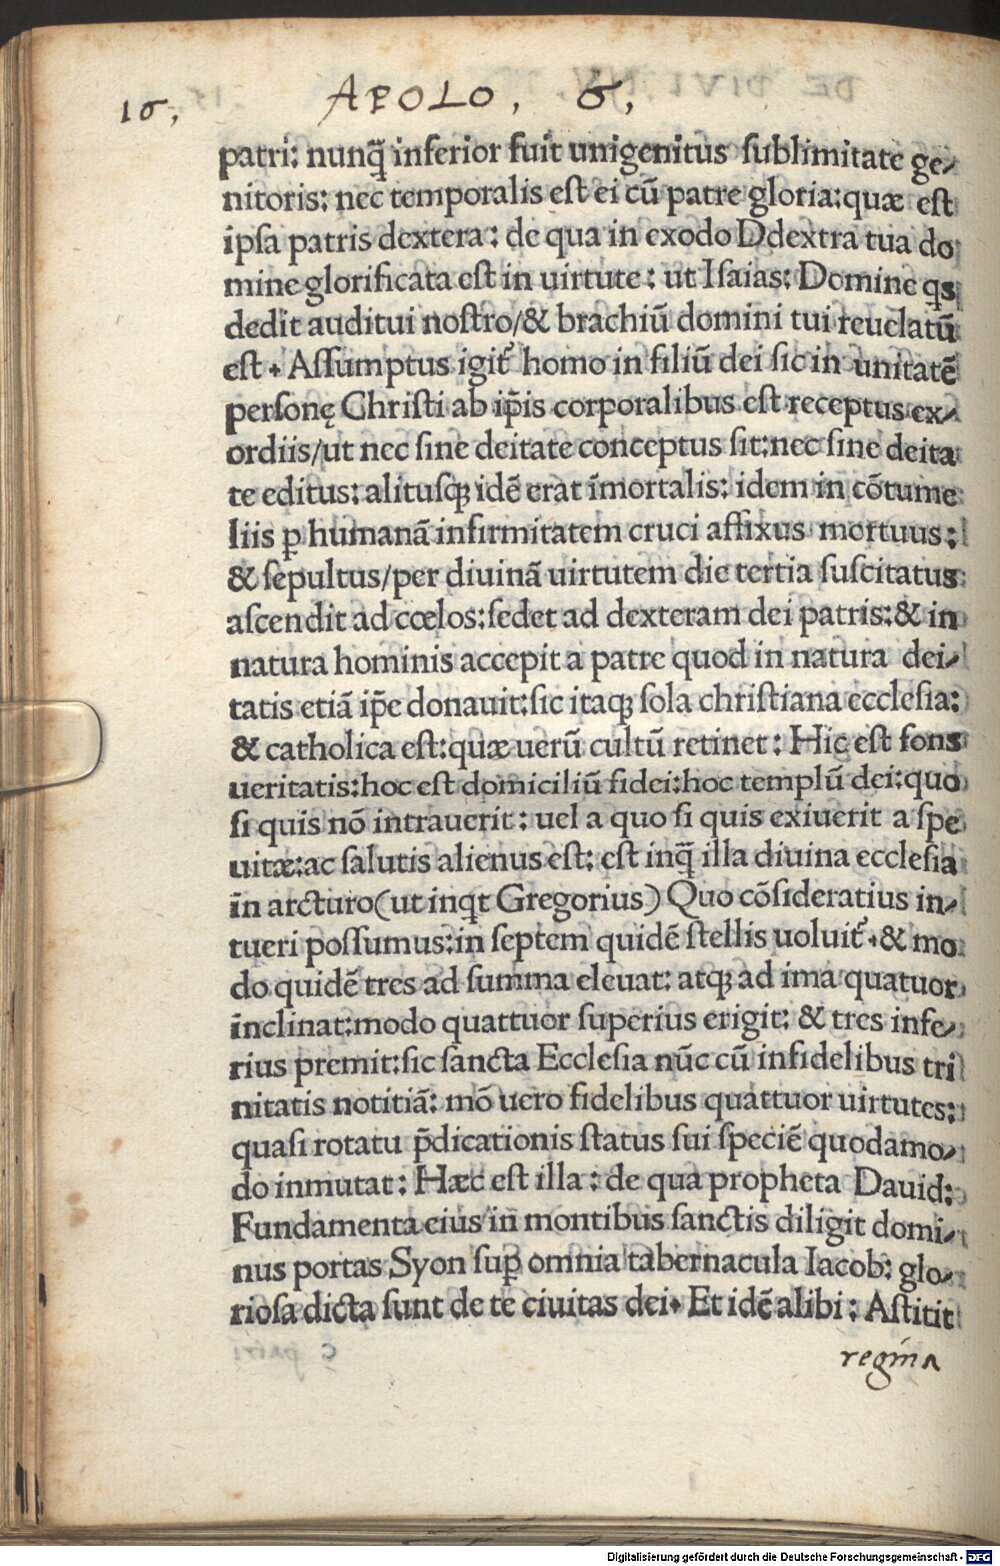 16, APOLO, 6,
patri: nunq̃ inferior fuit unigenitus ſublimitate ge⸗
nitoris: nec temporalis eſt ei cũ patre gloria: quæ eſt
ipſa patris dextera: de qua in exodo Ddextra tua do
mine glorificata eſt in uirtute: ut Iſaias: Domine qs
dedit auditui noſtro/& brachiũ domini tui reuelatũ
eſt. Aſſumptus igit̃ homo in filiũ dei ſic in unitatẽ
perſonę Chriſti ab ip̃is corporalibus eſt receptus ex⸗
ordiis/ut nec ſine deitate conceptus ſit: nec ſine deita
te editus: alituſqꝫ idẽ erat ĩmortalis: idem in cõtume
liis ꝑ humanã infirmitatem cruci affixus mortuus:
& ſepultus/per diuinã uirtutem die tertia ſuſcitatus
aſcendit ad cœlos: ſedet ad dexteram dei patris: & in
natura hominis accepit a patre quod in natura dei⸗
tatis etiã ip̃e donauit: ſic itaqꝫ ſola chriſtiana eccleſia:
& catholica eſt: quæ uerũ cultũ retinet: Hic eſt fons
ueritatis: hoc eſt domiciliũ fidei: hoc templũ dei: quo
ſi quis nõ intrauerit: uel a quo ſi quis exiuerit a ſpe
uitæ: ac ſalutis alienus eſt: eſt inq̃ illa diuina eccleſia
ĩn arcturo (ut inqt Gregorius) Quo cõſideratius in⸗
tueri poſſumus: in ſeptem quidẽ ſtellis uoluit̃. & mo
do quidẽ tres ad ſumma eleuat: atqꝫ ad ima quatuor
ĩnclinat: modo quattuor ſuperius erigit: & tres infe⸗
rius premit: ſic ſancta Eccleſia nũc cũ infidelibus tri
nitatis notitiã: mõ uero fidelibus quattuor uirtutes:
quaſi rotatu p̃dicationis ſtatus ſui ſpeciẽ quodamo⸗
do inmutat: Hæc eſt illa: de qua propheta Dauid:
Fundamenta eius in montibus ſanctis diligit domi⸗
nus portas Syon ſuꝑ omnia tabernacula Iacob: glo⸗
rioſa dicta ſunt de te ciuitas dei. Et idẽ alibi: Aſtitit
regina
Digitalisierung gefördert durch die Deutsche Forschungsgemeinschaft - DFG